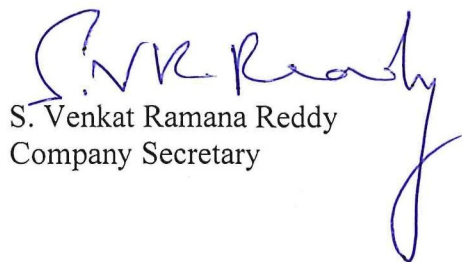 S.V.R. Reddy
S. Venkat Ramana Reddy
Company Secretary